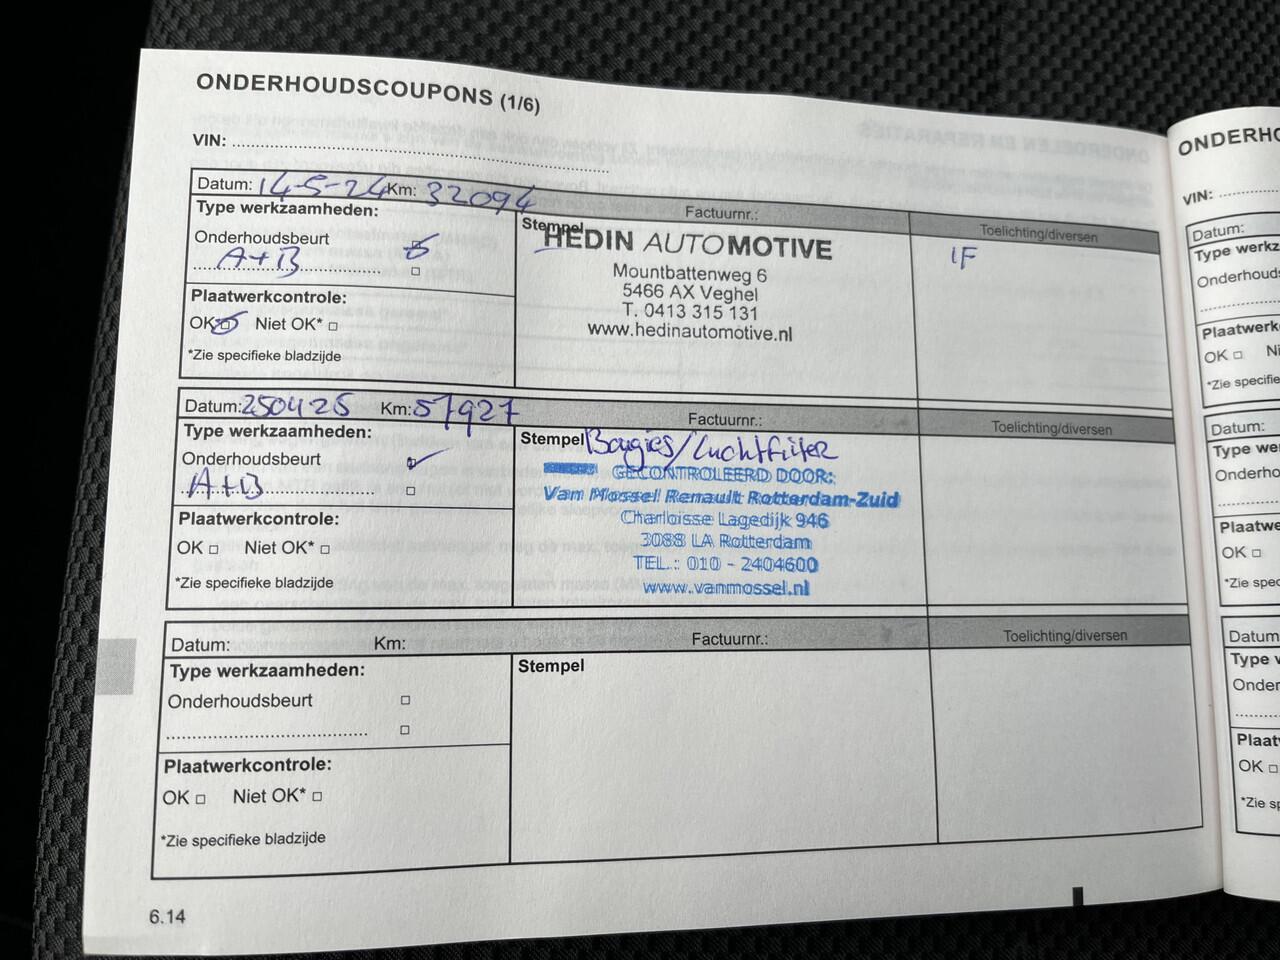 ONDERHOUDSCOUPONS (1/6)
VIN:
Datum: 14-5-24 Km: 32094
Factuurnr.:
Toelichting/diversen
Type werkzaamheden:
Onderhoudsbeurt
A+B
Plaatwerkcontrole:
OK Niet OK*
*Zie specifieke bladzijde
Stempel
HEDIN AUTOMOTIVE
Mountbattenweg 6
5466 AX Veghel
T. 0413 315 131
www.hedinautomotive.nl
IF
Datum: 250425 Km: 57927
Factuurnr.:
Toelichting/diversen
Type werkzaamheden:
Onderhoudsbeurt
A+B
Plaatwerkcontrole:
OK Niet OK*
*Zie specifieke bladzijde
Stempel Bougies/Luchtfilter
GECONTROLEERD DOOR:
Van Mossel Renault Rotterdam-Zuid
Charloisse Lagedijk 946
3088 LA Rotterdam
TEL.: 010 - 2404600
www.vanmossel.nl
Datum: Km:
Factuurnr.:
Toelichting/diversen
Type werkzaamheden:
Onderhoudsbeurt
Plaatwerkcontrole:
OK Niet OK*
*Zie specifieke bladzijde
Stempel
6.14
ONDERHO
VIN:
Datum:
Type werkz
Onderhouds
Plaatwerk
OK Ni
*Zie specifie
Datum:
Type we
Onderho
Plaatwe
OK
*Zie spec
Datum
Type w
Onder
Plaat
OK
*Zie sp